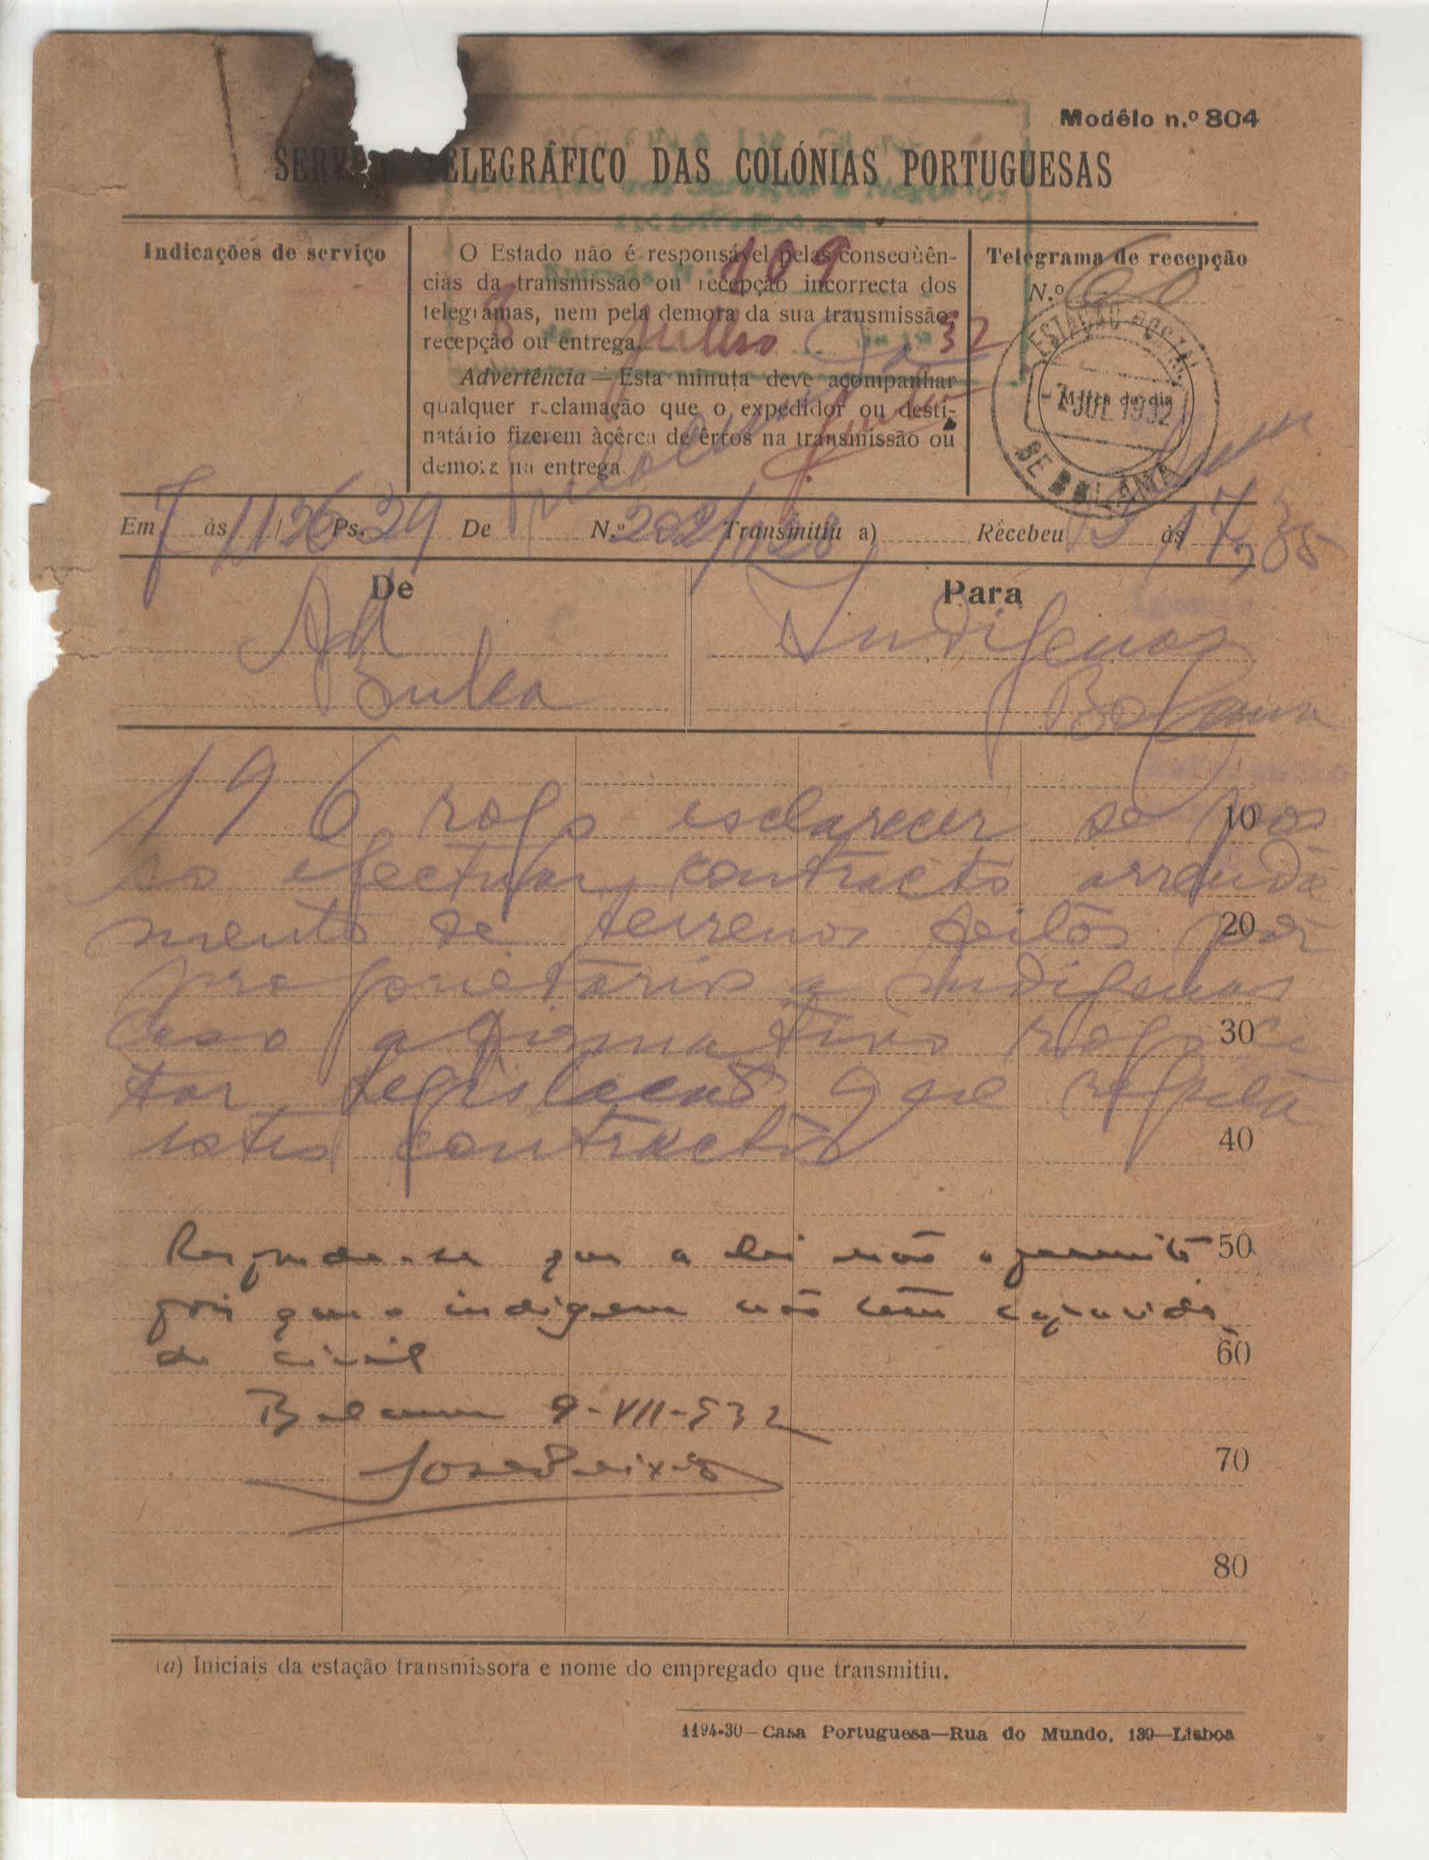 Modêlo n.º 804
TELEGRÁFICO DAS COLÓNIAS PORTUGUESAS
Indicações de serviço
O Estado não é responsável pelas conseqüên-
cias da transmissão ou recepção incorrecta dos
telegramas, nem pela demora da sua transmissão,
recepção ou entrega.
Advertência — Esta minuta deve acompanhar
qualquer reclamação que o expedidor ou desti-
natário fizerem àcêrca de êrros na transmissão ou
demora na entrega
109
8 de Julho 32
Telegrama de recepção
N.º 60
ESTAÇÃO POSTAL
7 JUL 1932
DE BOLAMA
Em 7 às 11/26 Ps. 29 De N.º 202/1028 Transmitiu a) Recebeu às 17,35
De
Para
Ad
Indigenas
Bula
Bolama
196 rogo esclarecer se pos
so efectuar contracto arrenda
mento de terrenos feitos por
proprietários a indigenas
caso afirmativo rogo ci
tar legislacao que regula
estes contractos
10
20
30
40
50
60
70
80
Responda-se que a lei não o permite
pois que o indigena não tem capacida
de civil
Bolama 9-VII-932
José Peixoto
(a) Iniciais da estação transmissora e nome do empregado que transmitiu.
1194-30 — Casa Portuguesa—Rua do Mundo, 139—Lisboa